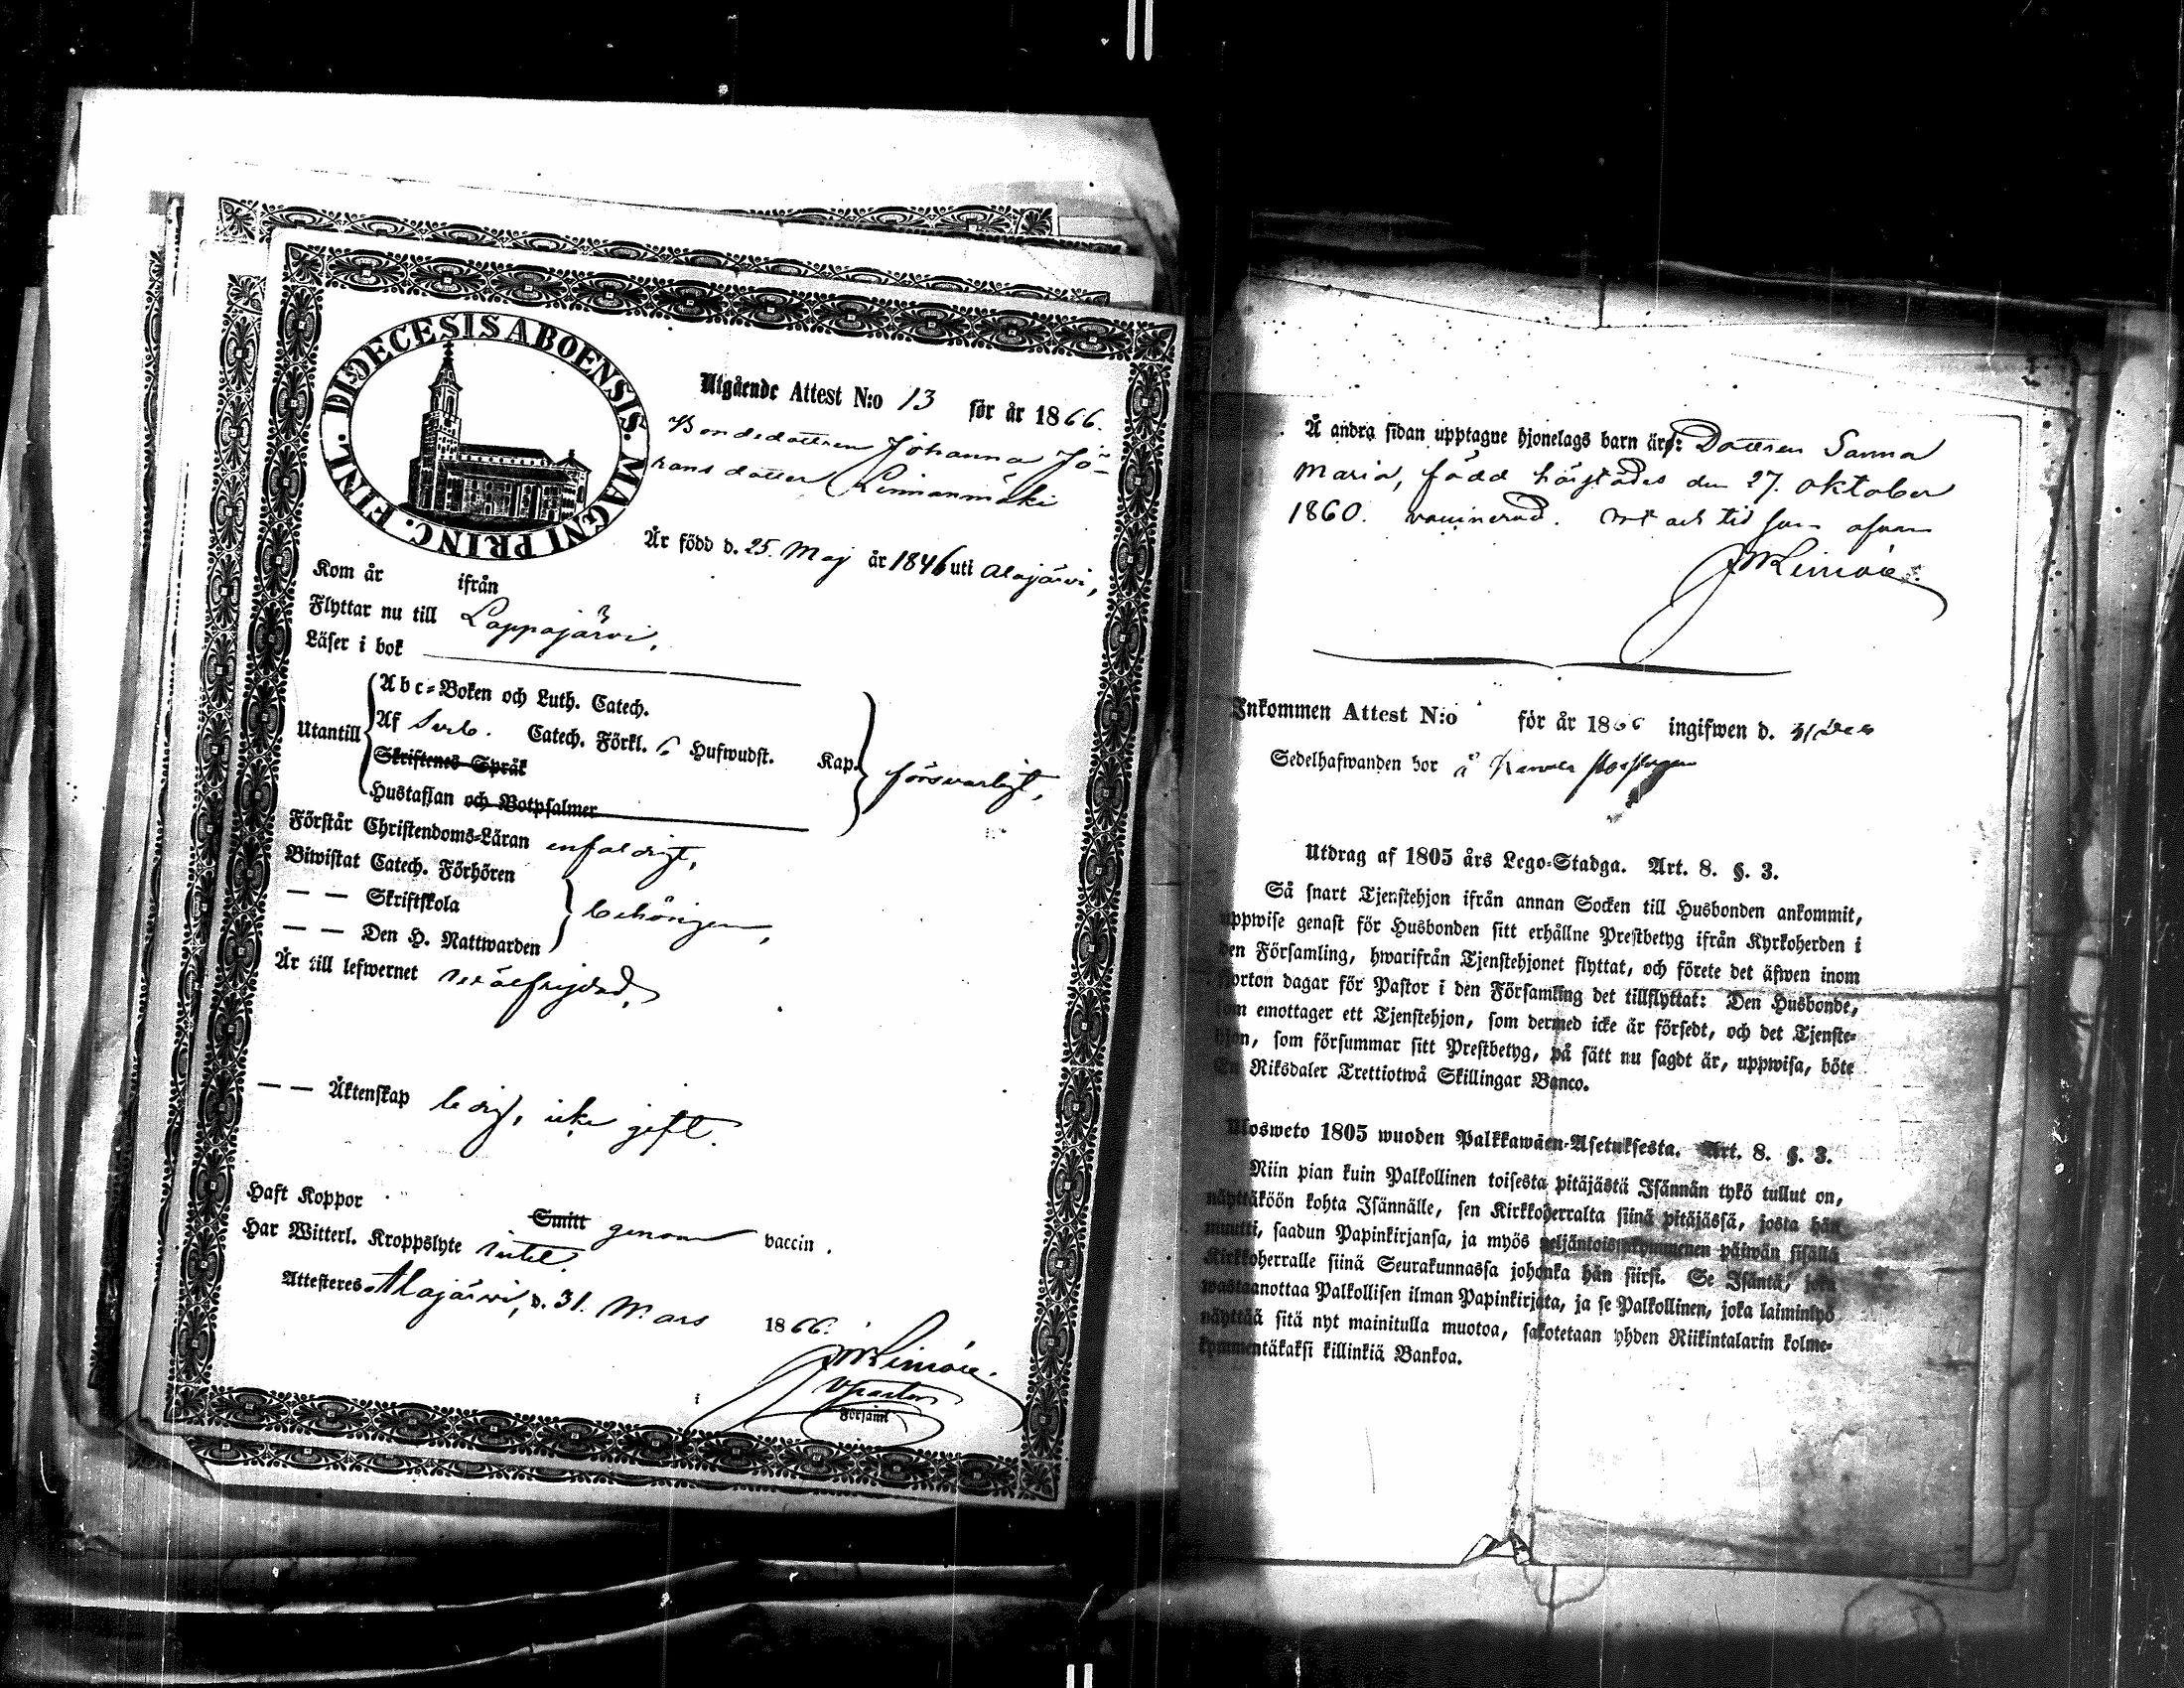 DIŒCESIS ABOENSIS. MAGNI PRINC. FINL.
Utgående Attest N:o 13 för år 1866.
Bondedottren Johanna Jo-
hansdotter Linnanmäki
Är född d. 25. Maj år 1846 uti Alajärvi,
Kom år ifrån
Flyttar nu till Lappajärvi,
Läser i bok
Utantill
Abc-Boken och Luth. Catech.
Af Sveb. Catech. Förkl. 6 Hufwudst. Kap.
Skriftenes Språk
Hustaflan och Botpsalmer
försvarligt,
Förstår Christendoms-Läran enfaldigt,
Biwistat Catech. Förhören
— — Skriftskola
— — Den H. Nattwarden
behörigen,
Är till lefwernet ovälfrejdad,
— — Äktenskap ledig, icke gift.
Haft Koppor Smitt genom vaccin.
Har Witterl. Kroppslyte intet.
Attesteres Alajärvi, d. 31. Mars 1866.
V Pastor
Församl
Å andra sidan upptagne hjonelags barn äro: Dottren Sanna
Maria, född härstädes den 27. oktober
1860. vaccinerad. ort och tid som ofvan
Inkommen Attest N:o för år 1866 ingifwen d.
Sedelhafwanden bor å
Utdrag af 1805 års Lego-Stadga. Art. 8. §. 3.
Så snart Tjenstehjon ifrån annan Socken till Husbonden ankommit,
uppwise genast för Husbonden sitt erhållne Prestbetyg ifrån Kyrkoherden i
den Församling, hwarifrån Tjenstehjonet flyttat, och förete det äfwen inom
fjorton dagar för Pastor i den Församling det tillflyttat: Den Husbonde,
som emottager ett Tjenstehjon, som dermed icke är försedt, och det Tjenste-
hjon, som försummar sitt Prestbetyg, på sätt nu sagdt är, uppwisa, böte
En Riksdaler Trettiotwå Skillingar Banco.
Ulosweto 1805 wuoden Palkkawäen-Asetuksesta. Art. 8. §. 3.
Niin pian kuin Palkollinen toisesta pitäjästä Isännän tykö tullut on,
näyttäköön kohta Isännälle, sen Kirkkoherralta siinä pitäjässä, josta hän
muutti, saadun Papinkirjansa, ja myös neljäntoistakymmenen päiwän sisällä
Kirkkoherralle siinä Seurakunnassa johonka hän siirsi. Se Isäntä, joka
wastaanottaa Palkollisen ilman Papinkirjata, ja se Palkollinen, joka laiminlyö
näyttää sitä nyt mainitulla muotoa, sakotetaan yhden Riikintalarin kolme-
kymmentäkaksi killinkiä Bankoa.